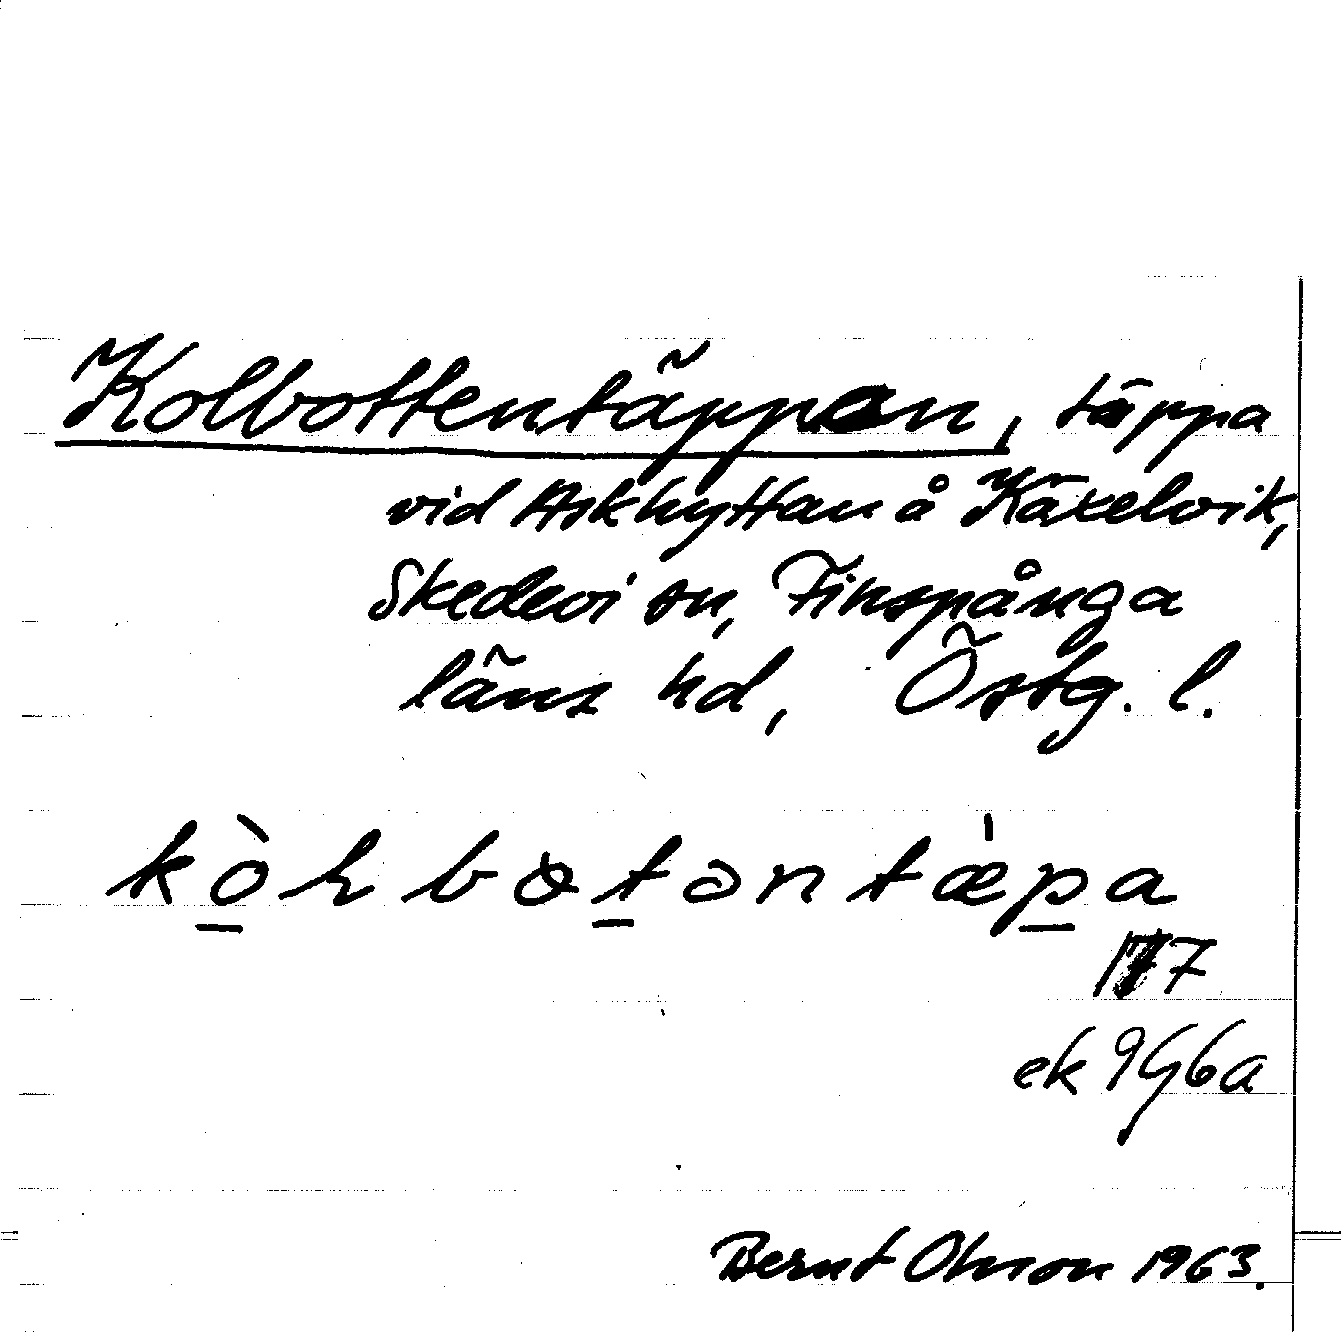 Kolbottentäppan, täppa
vid Askhyttan å Käxelvik,
Skedevi sn, Finspånga
läns hd, Östg. l.
kòhbotəntæ̀pa
177
ek 9G6a
Bernt Olsson 1963.